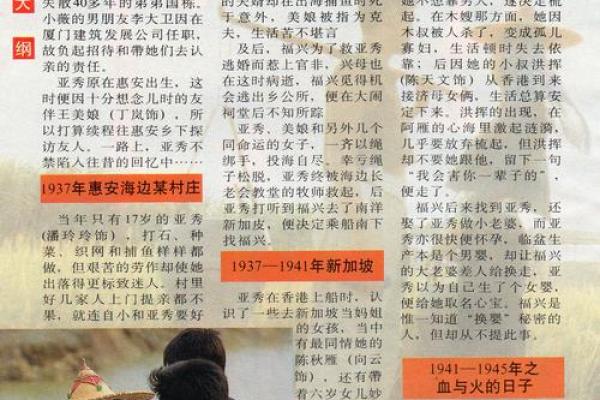 大
纲
失散40多年的弟弟国栋。
小薇的男朋友李大卫因在
厦门建筑发展公司任职，
故负起招待和带她们去认
亲的责任。
亚秀原在惠安出生，这
时便因十分想念儿时的友
伴王美娘（丁岚饰），所
以打算续程往惠安乡下探
访友人。一路上，亚秀不
禁陷入往昔的回忆中……
1937年惠安海边某村庄
当年只有17岁的亚秀
(潘玲玲饰），打石、种
菜、织网和捕鱼样样都
做，但艰苦的劳作却使她
出落得更标致迷人。村里
好几家人上门提亲都不
果，就连自小和亚秀要好
的夫婿却在出海捕鱼时死
于意外，美娘被指为克
夫，生活苦不堪言
及后，福兴为了救亚秀
逃婚而惹上官非，兴母也
在这时病逝，福兴觅得机
会逃出乡公所，便在大闹
祠堂后不知所踪
亚秀、美娘和另外几个
同命运的女子，一齐以绳
绑手，投海自尽。幸亏绳
子松脱，亚秀终被海边长
老会教堂的牧师救起，后
亚秀打听到福兴去了南洋
新加皮，便决定乘船南下
找福兴。
1937—1941年新加坡
亚秀在香港上船时，认
识了一些去新加坡当妈姐
的女孩，当中
有最同情她的
陈秋雁（向云
饰），还有带
着六岁女儿妙
起。在木嫂那方面，她因
木叔被人杀了，变成孤儿
寡妇，生活顿时失去依
靠；后因她的小叔洪挥
(陈天文饰）从香港到来
接济母女俩，生活总算安
定下来。洪挥的出现，在
阿雁的心海里激起涟漪，
几乎要放弃梳起，但洪挥
却不要她跟他，留下一句
“我会害你一辈子的”，
便走了。
福兴后来找到亚秀，还
娶了亚秀做小老婆，而亚
秀亦很快便怀孕，临盆生
产本是个男婴，却让福兴
的大老婆差人给换走，亚
秀以为自己生了个女婴，
便给她取名心宝。福兴是
惟一知道“换婴”秘密的
人，但却从不提此事。
1941—1945年之
血与火的日子